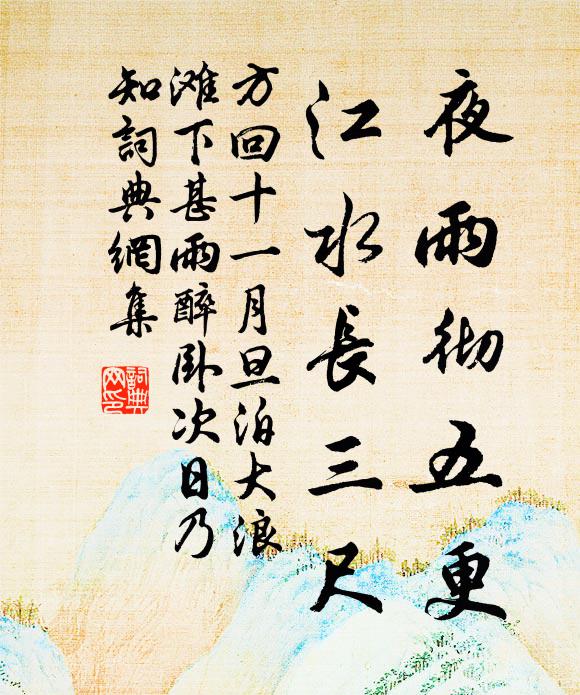 夜雨彻五更
江水長三尺
方回十一月旦泊大浪
滩下甚雨醉卧次日乃
知詞典網集
詞典
网印